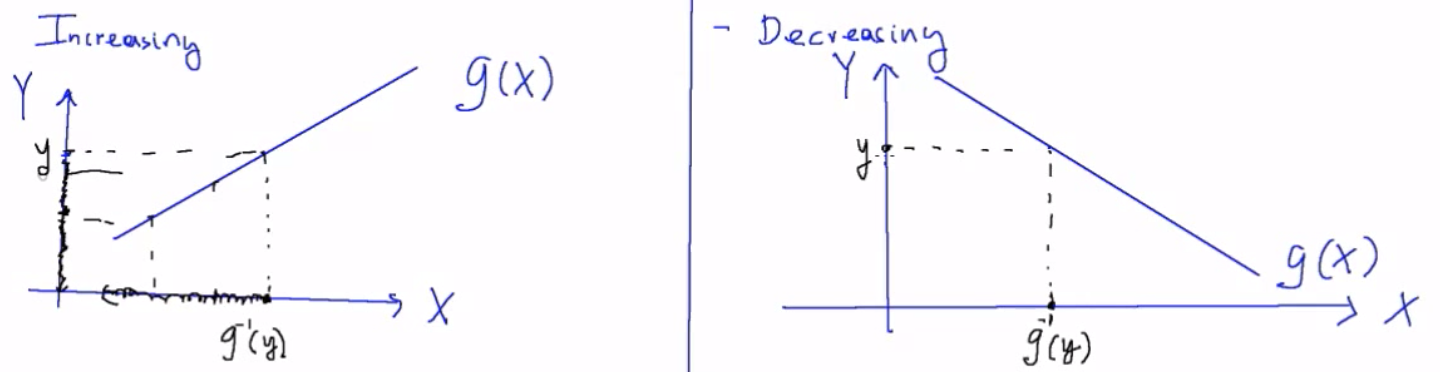 Increasing
Y
g(X)
y
X
g⁻¹(y)
- Decreasing
Y
y
g(X)
X
g⁻¹(y)